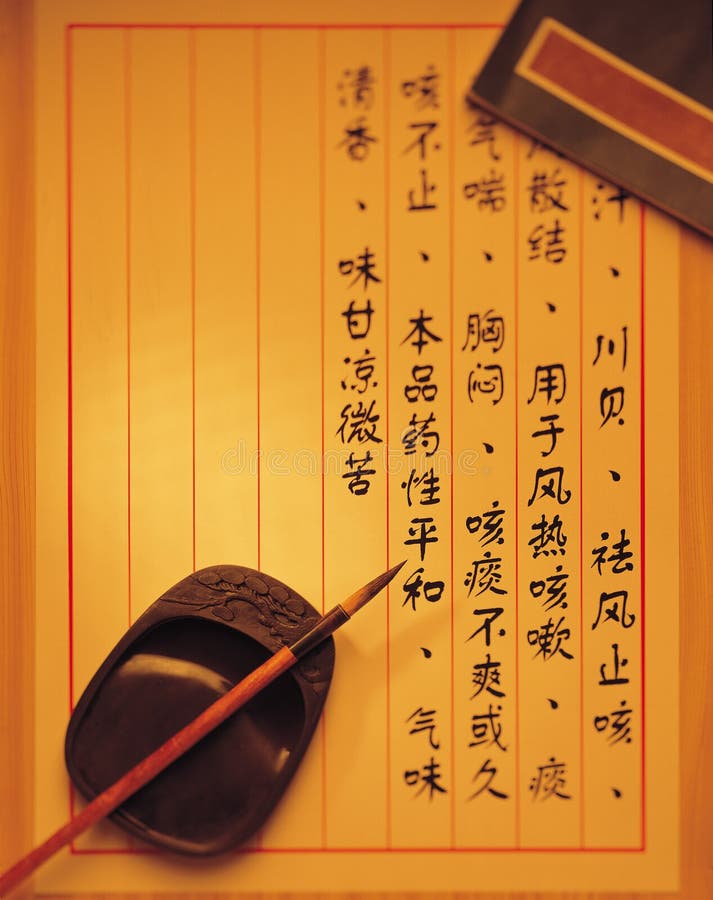 汗、川贝、祛风止咳、
散结、用于风热咳嗽、痰
气喘、胸闷、咳痰不爽或久
咳不止、本品药性平和、气味
清香、味甘凉微苦
dreamstime